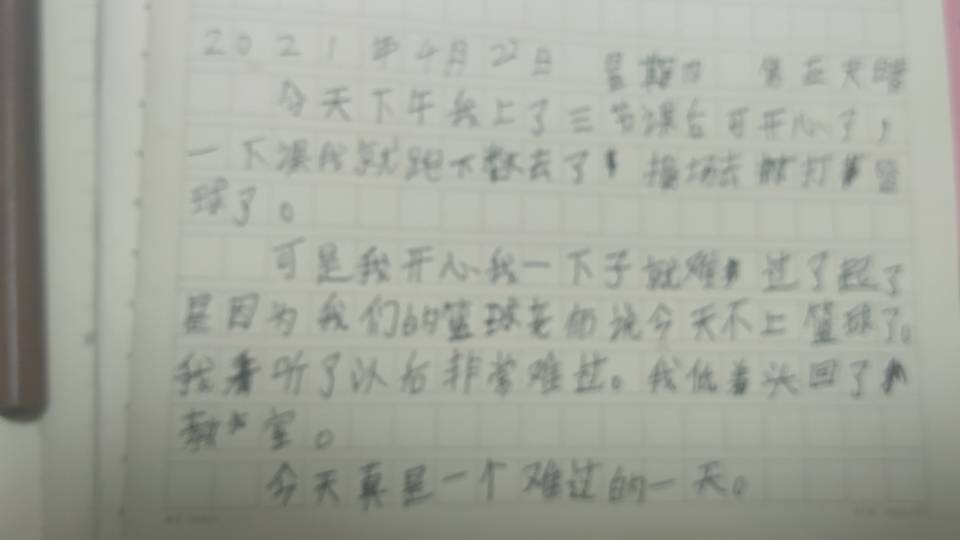 2021年4月22日 星期四
今天下午我上了三节课后可开心了，
一下课我就跑下去了 操场去打篮
球了。
可是我开心我一下子就难过了起了
是因为我们的篮球老师说今天不上篮球了。
我听了以后非常难过。我低着头回了
教室。
今天真是一个难过的一天。